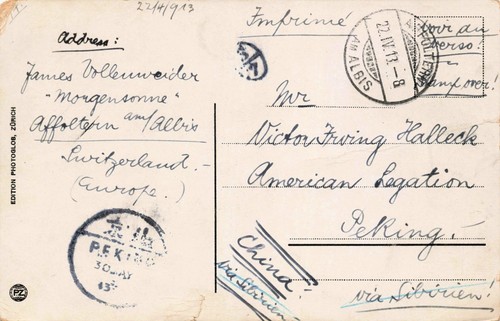 22/4/913
Address:
James Vollenweider
"Morgensonne"
Affoltern am/Albis
Switzerland.-
(Europe.)
EDITION PHOTOGLOB, ZÜRICH
PZ
PEKING
30 MAY
13
Imprimé
AFFOLTERN
22.IV.13.-8
AM ALBIS
voir au
verso!
over!
Mr
Victor Irving Halleck
American Legation
Peking.-
China!
via Sibirien
via Sibirien!